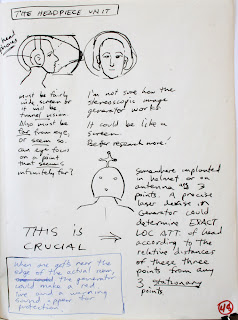 THE HEADPIECE UNIT
head phones
must be fairly
wide screen or
it will be
tunnel vision
Also must be
far from eye,
or seem so.
can eye focus
on a point
that seems
infinitely far?
I'm not sure how the
stereoscopic image
generator works
It could be like a
screen.
Better research more!
THIS IS
CRUCIAL
Somewhere implanted
in helmet or an
antenna is 3
points. A precise
laser device or
generator could
determine EXACT
LOC ATT. of head
according to the
relative distances
of these three
points from any
3 stationary
points
When one gets near the
edge of the actual room,
the generator
would make a red
line and a warning
sound appear for
protection